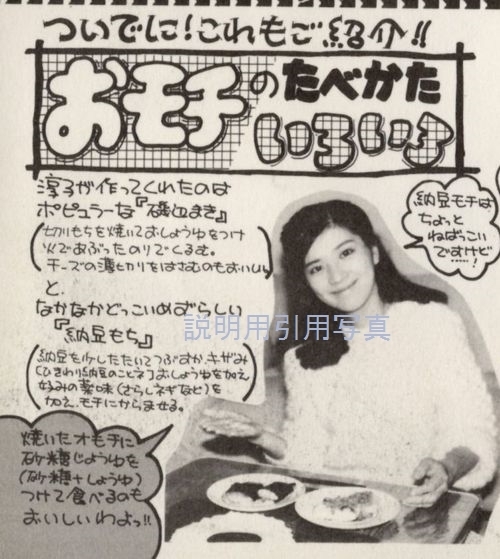 ついでに!これもご紹介!!
おモチのたべかた
いろいろ
淳子が作ってくれたのは
ポピュラーな『磯辺まき』
(切りもちを焼いておしょうゆをつけ
火であぶったのりでくるむ。
チーズの薄切りをはさむのもおいしい)
と、
なかなかどっこいめずらしい
『納豆もち』
(納豆を少したたいてつぶすか、キザみ
(ひきわり納豆のことネ)おしょうゆを加え
好みの薬味(さらしネギなど)を
加え、モチにからませる。)
納豆モチは
ちょっと
ねばっこい
ですけど
…!
説明用引用写真
焼いたオモチに
砂糖じょうゆを
(砂糖+しょうゆ)
つけて食べるのも
おいしいわよっ!!